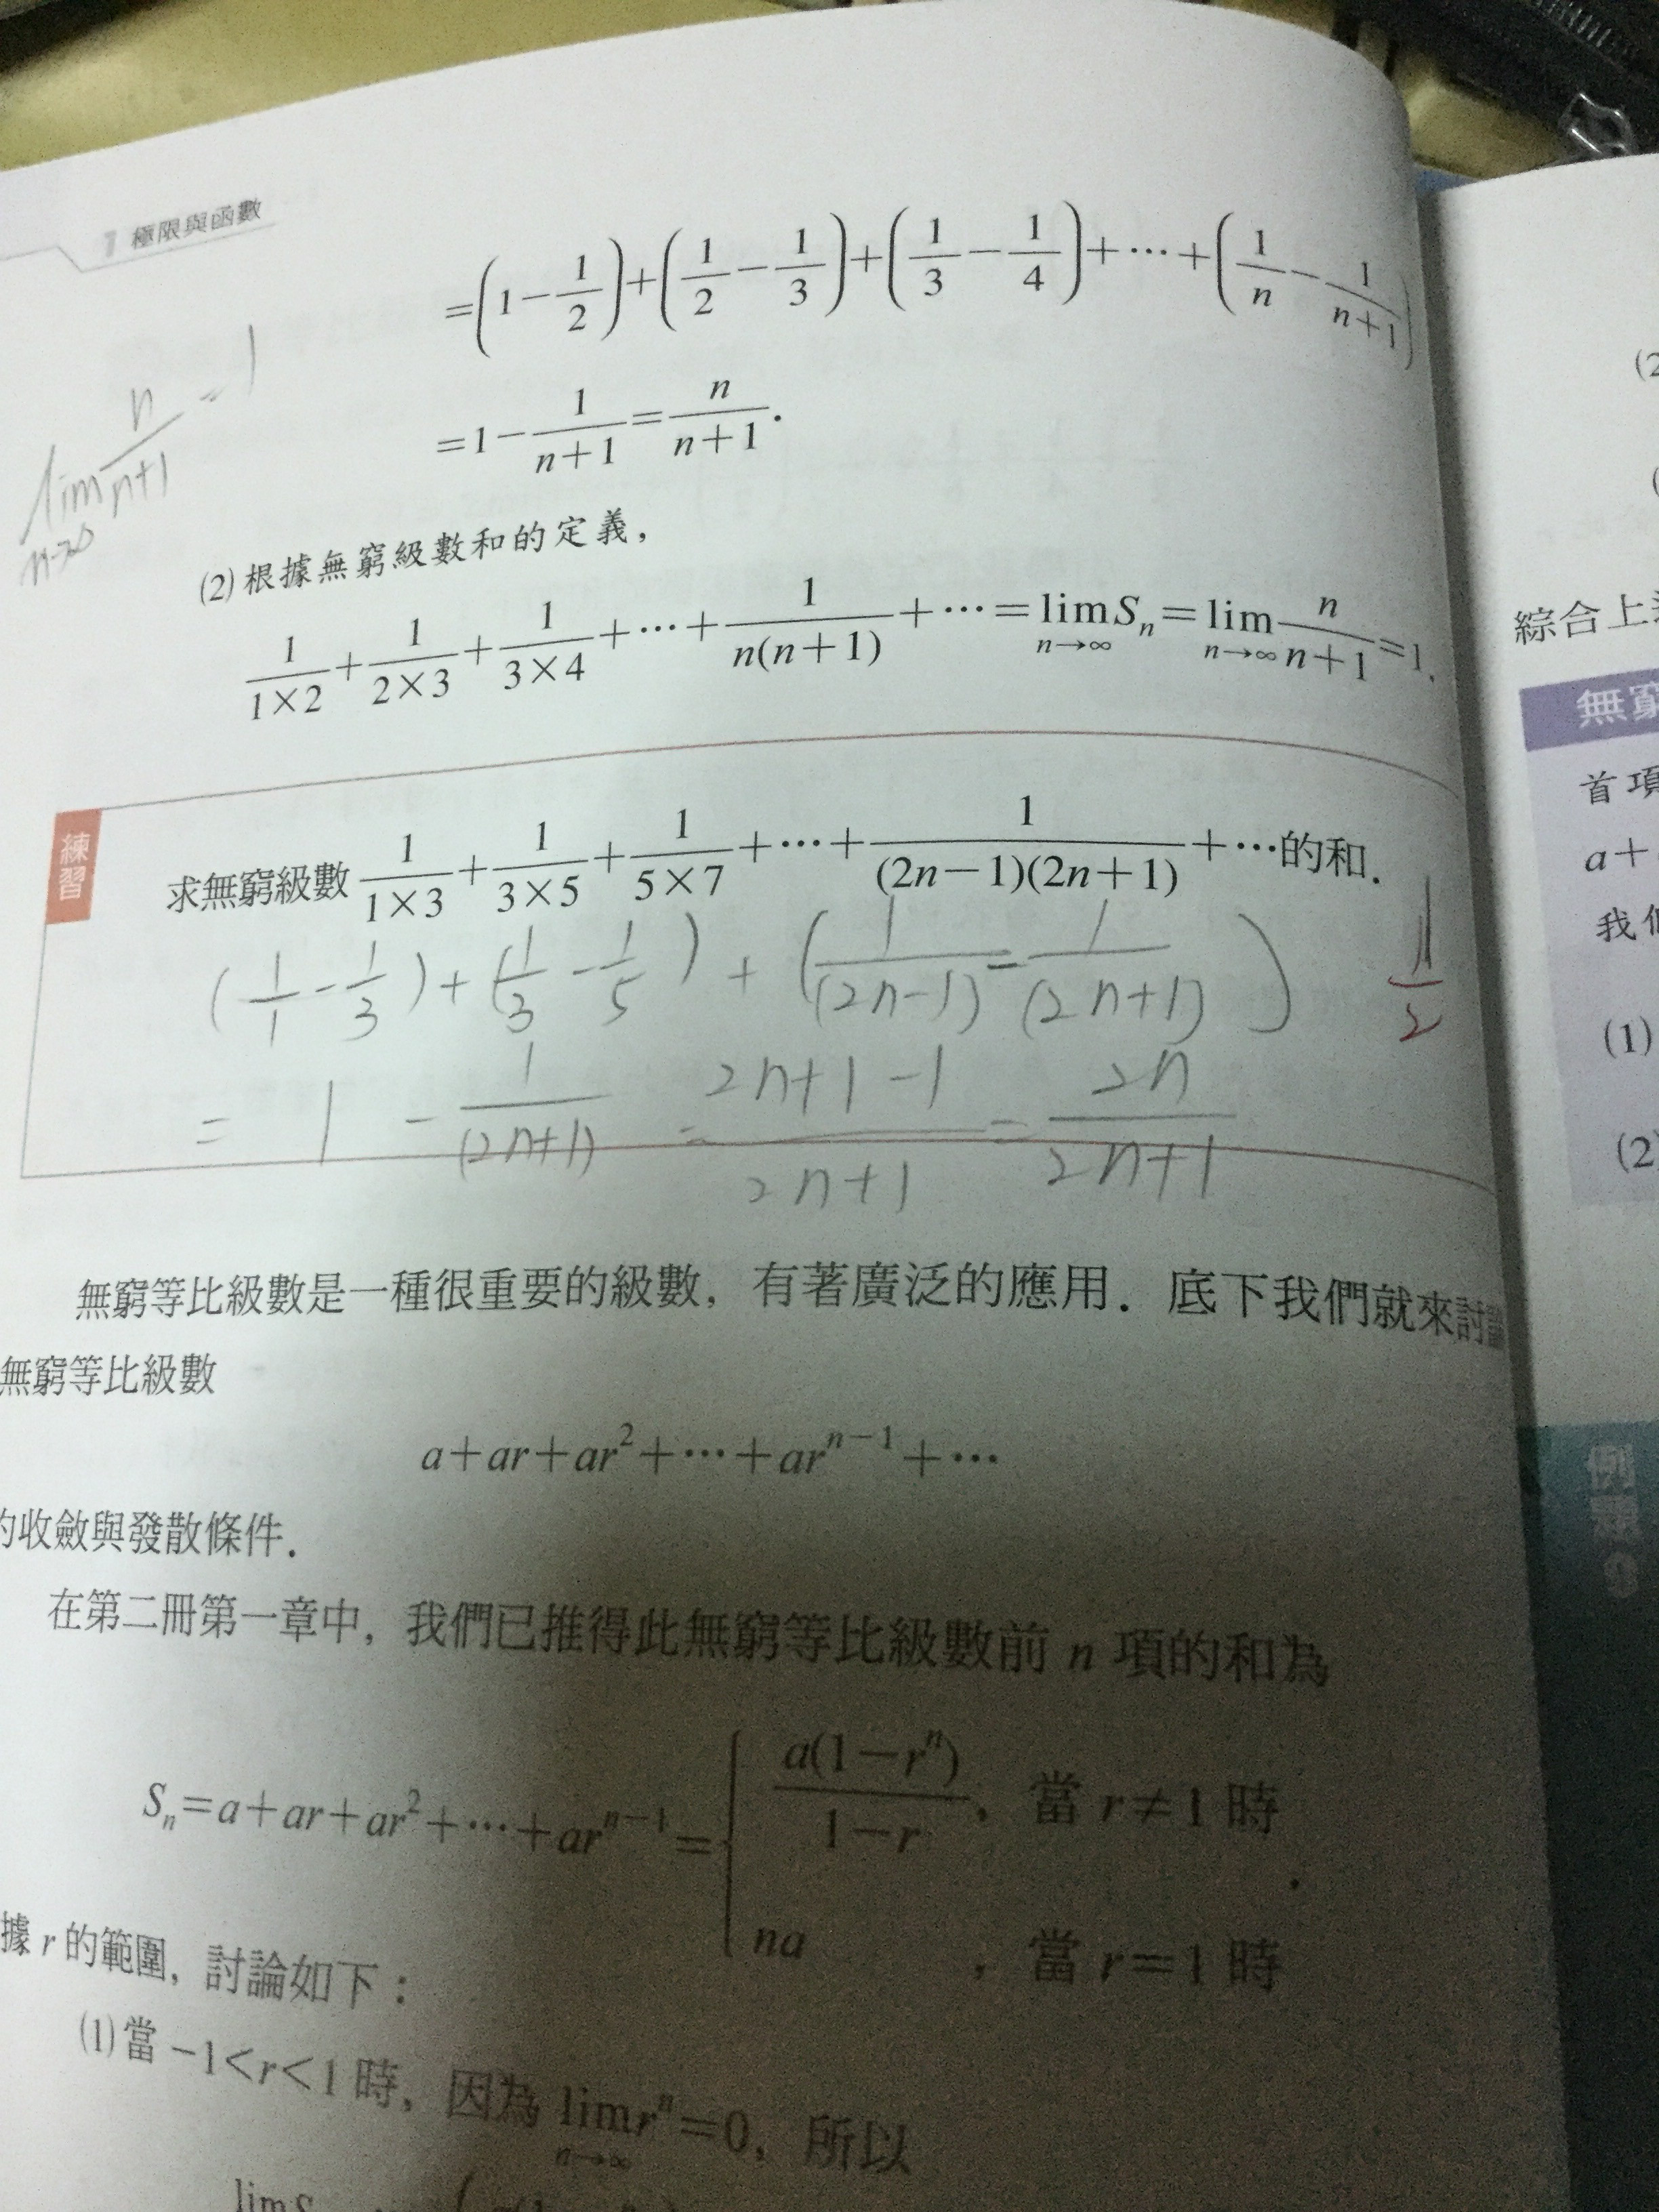 1 極限與函數
=(1-1/2)+(1/2-1/3)+(1/3-1/4)+⋯+(1/n-1/(n+1))
=1-1/(n+1)=n/(n+1).
lim n→∞ n/(n+1) = 1
(2)根據無窮級數和的定義,
1/(1×2)+1/(2×3)+1/(3×4)+⋯+1/(n(n+1))+⋯=lim n→∞ Sₙ=lim n→∞ n/(n+1)=1.
練習
求無窮級數 1/(1×3)+1/(3×5)+1/(5×7)+⋯+1/((2n-1)(2n+1))+⋯的和.
(1/1-1/3)+(1/3-1/5)+(1/(2n-1)-1/(2n+1))
1/2
= 1 - 1/(2n+1) = (2n+1-1)/(2n+1) = 2n/(2n+1)
無窮等比級數是一種很重要的級數,有著廣泛的應用.底下我們就來討論
無窮等比級數
a+ar+ar²+⋯+arⁿ⁻¹+⋯
的收斂與發散條件.
在第二冊第一章中,我們已推得此無窮等比級數前 n 項的和為
Sₙ=a+ar+ar²+⋯+arⁿ⁻¹={ a(1-rⁿ)/(1-r), 當 r≠1 時
na , 當 r=1 時 .
據 r 的範圍,討論如下:
(1)當 -1<r<1 時,因為 lim n→∞ rⁿ=0,所以
lim S
(2
綜合上
無窮
首項
a+
我們
(1)
(2)
例題